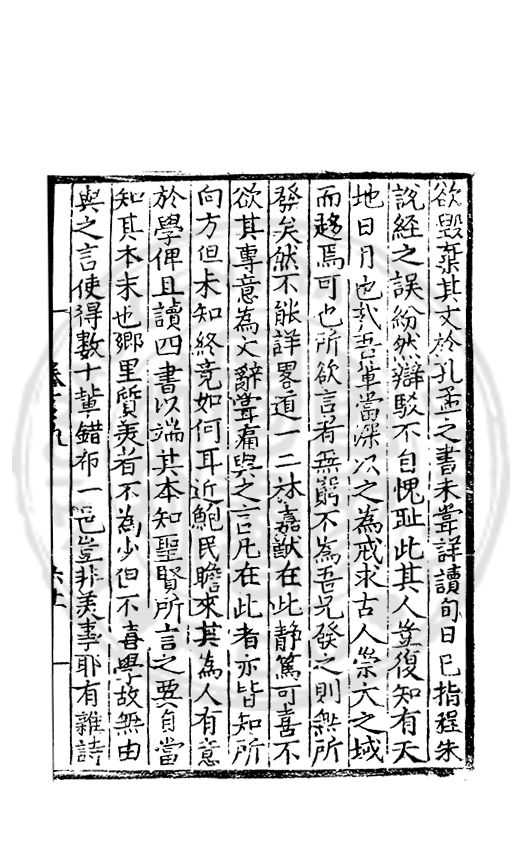 欲毀棄其文於孔孟之書未甞詳讀旬日已指程朱
說經之誤紛然辯駁不自愧耻此其人豈復知有天
地日月也哉吾軰當深以之為戒求古人崇大之域
而趍焉可也所欲言者無窮不為吾兄發之則無所
發矣然不能詳畧道一二林嘉猷在此静篤可喜不
欲其專意為文辭甞痛與之言凡在此者亦皆知所
向方但未知終竟如何耳近鮑民瞻來其為人有意
於學俾且讀四書以端其本知聖賢所言之要自當
知其本末也鄉里質美者不為少但不喜學故無由
與之言使得數十軰錯布一邑豈非美事耶有雜詩